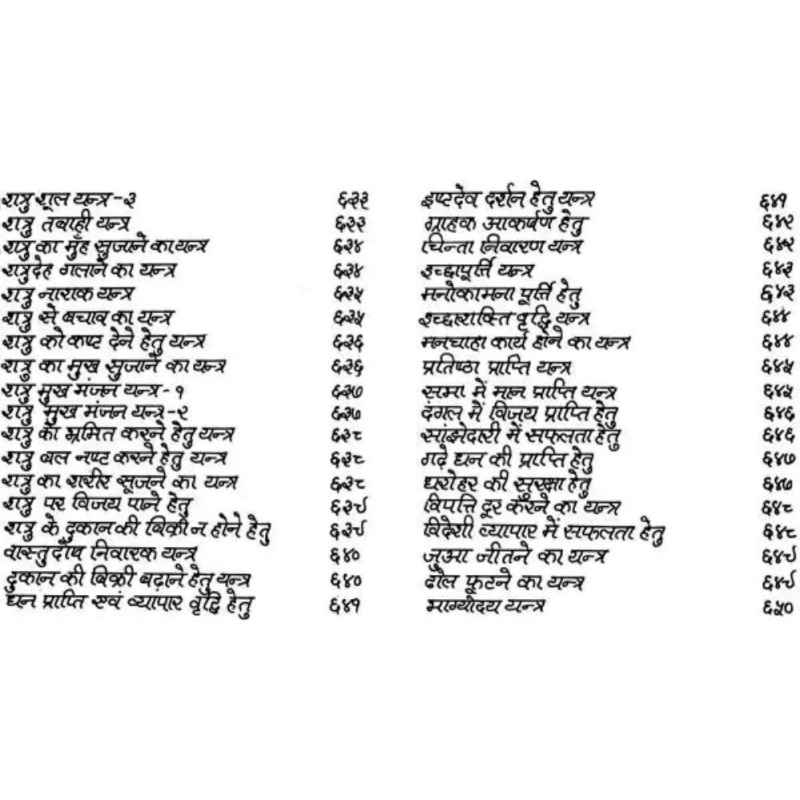 शत्रु शूल यन्त्र-३ ६३३
शत्रु तबाही यन्त्र ६३३
शत्रु का मुँह सुजाने का यन्त्र ६३४
शत्रुदेह गलाने का यन्त्र ६३४
शत्रु नाशक यन्त्र ६३५
शत्रु से बचाव का यन्त्र ६३५
शत्रु को कष्ट देने हेतु यन्त्र ६३६
शत्रु का मुख सुजाने का यन्त्र ६३६
शत्रु मुख भंजन यन्त्र-१ ६३७
शत्रु मुख भंजन यन्त्र-२ ६३७
शत्रु को भ्रमित करने हेतु यन्त्र ६३८
शत्रु बल नष्ट करने हेतु यन्त्र ६३८
शत्रु का शरीर सूजने का यन्त्र ६३८
शत्रु पर विजय पाने हेतु ६३९
शत्रु के दुकान की बिक्री न होने हेतु ६३९
वास्तुदोष निवारक यन्त्र ६४०
दुकान की बिक्री बढ़ाने हेतु यन्त्र ६४०
धन प्राप्ति एवं व्यापार वृद्धि हेतु ६४१
इष्टदेव दर्शन हेतु यन्त्र ६४१
ग्राहक आकर्षण हेतु ६४२
चिन्ता निवारण यन्त्र ६४२
इच्छापूर्त्ति यन्त्र ६४३
मनोकामना पूर्त्ति हेतु ६४३
इच्छाशक्ति वृद्धि यन्त्र ६४४
मनचाहा कार्य होने का यन्त्र ६४४
प्रतिष्ठा प्राप्ति यन्त्र ६४५
सभा में मान प्राप्ति यन्त्र ६४५
दंगल में विजय प्राप्ति हेतु ६४६
सांझेदारी में सफलता हेतु ६४६
गढ़े धन की प्राप्ति हेतु ६४७
धरोहर की सुरक्षा हेतु ६४७
विपत्ति दूर करने का यन्त्र ६४८
विदेशी व्यापार में सफलता हेतु ६४८
जुआ जीतने का यन्त्र ६४९
ढोल फूटने का यन्त्र ६४९
भाग्योदय यन्त्र ६५०